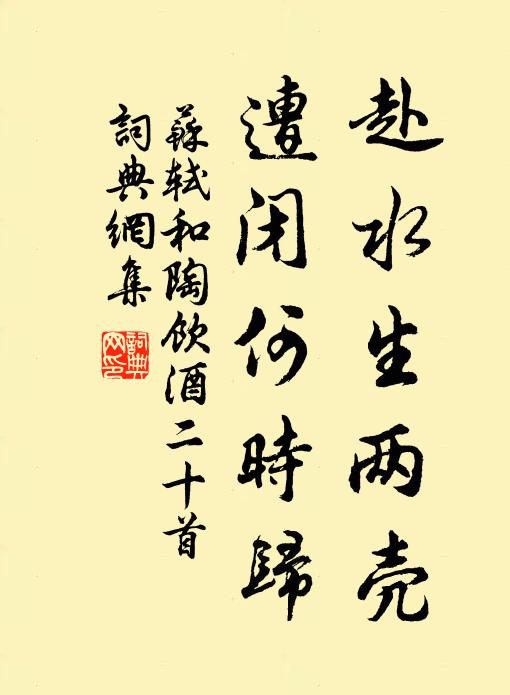 赴水生两壳
遭闭何時歸
蘇軾和陶飲酒二十首
詞典網集
詞典
网印